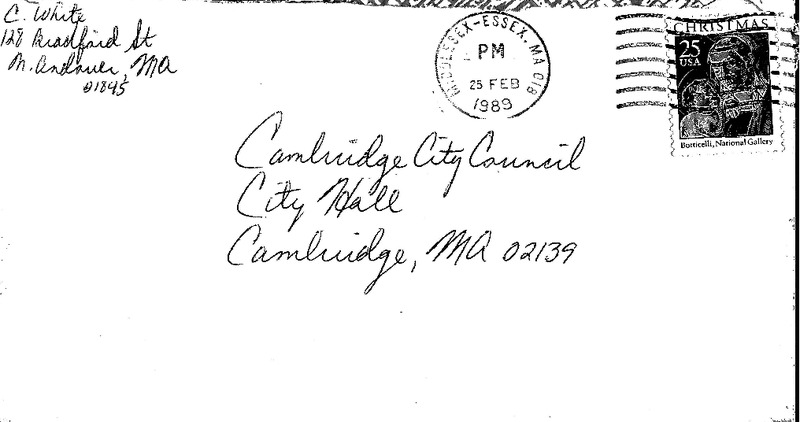 C. White
128 Bradford St
N. Andover, MA
01845
MIDDLESEX-ESSEX, MA 018
PM
25 FEB
1989
CHRISTMAS
25
USA
Botticelli, National Gallery
Cambridge City Council
City Hall
Cambridge, MA 02139